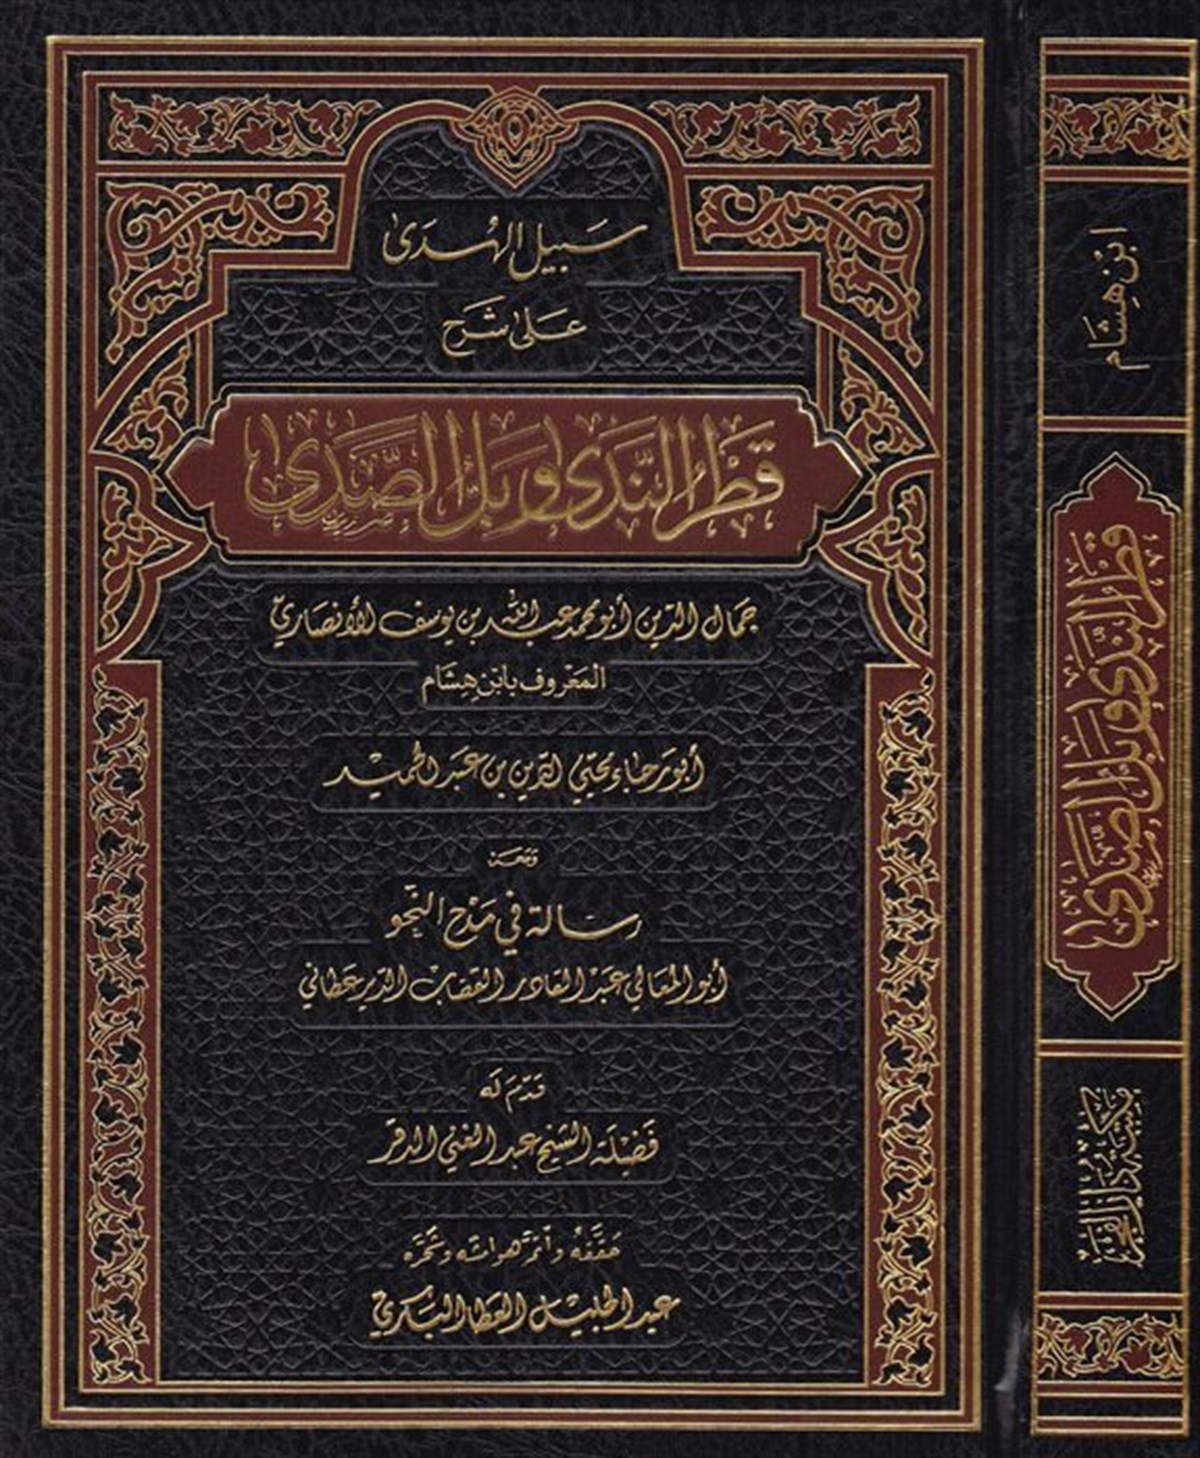 سبيل الهدى
على شرح
قطر الندى وبل الصدى
جمال الدين أبو محمد عبد الله بن يوسف الأنصاري
المعروف بابن هشام
أبو رجاء محيي الدين بن عبد الحميد
ومعه
رسالة في مدح النحو
أبو المعالي عبد القادر القصاب الدير عطاني
قدم له
فضيلة الشيخ عبد الغني الدقر
حققه وأتم هوامشه
عبد الجليل العطا البكري
ابن هشام
قطر الندى وبل الصدى
مكتبة دار الفجر